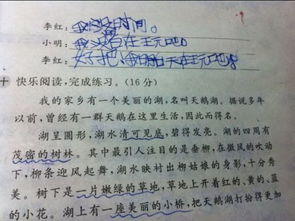 李红:我没时间。
小明:
李红:
十 快乐阅读,完成练习。(16分)
我的家乡有一个美丽的湖,名叫天鹅湖。据说多年
以前,曾经有一群天鹅在这里生活,因此而得名。
湖呈圆形,湖水清可见底,碧得发亮。湖的四周有
茂密的树林。其中最引人注目的是垂柳,在微风的吹动
下,柳条迎风起舞,湖水映衬出柳姑娘的身影,十分秀
美。树下是一片嫩绿的草地,草地上开着红的、黄的、蓝
的小花。湖上有一座美丽的小桥,把天鹅湖打扮得更加